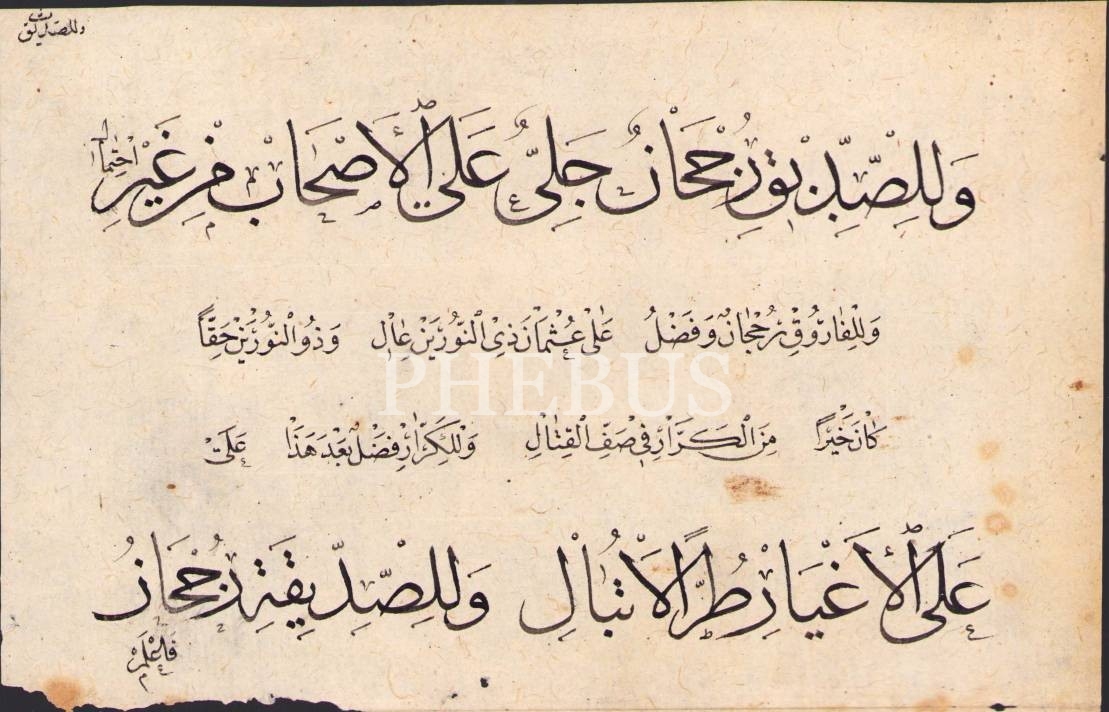 وللصديق
وَلِلصِّدِّيقِ رُجْحَانٌ جَلِيٌّ عَلَى الْأَصْحَابِ مِنْ غَيْرِ احْتِمَالِ
وَلِلْفَارُوقِ رُجْحَانٌ وَفَضْلٌ عَلَى عُثْمَانَ ذِي النُّورَيْنِ عَالِ وَذُو النُّورَيْنِ حَقًّا
PHEBUS
كَانَ خَيْرًا مِنَ الْكَرَّارِ فِي صَفِّ الْقِتَالِ وَلِلْكَرَّارِ فَضْلٌ بَعْدَ هَذَا عَلَى
عَلَى الْأَغْيَارِ طُرًّا لَا تُبَالِ وَلِلصِّدِّيقَةِ رُجْحَانٌ
فَاعْلَمْ